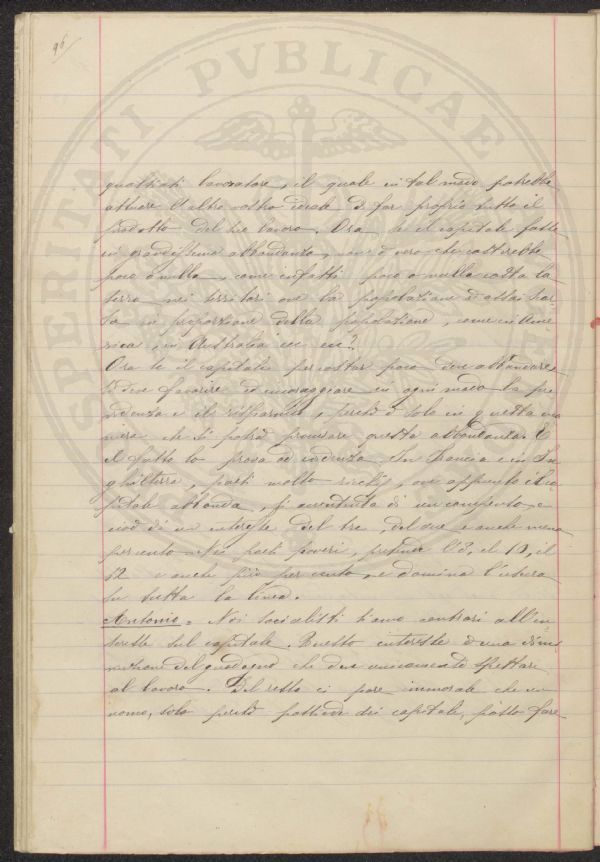 96
PROSPERITATI PVBLICAE
qualsiasi lavoratore, il quale in tal modo potrebbe
attuare l'altro vostro ideale di far proprio tutto il
prodotto del suo lavoro. Ora se il capitale fosse
in grandissima abbondanza, non è vero che costerebbe
poco o nulla, come infatti poco o nulla costa la
terra nei territori ove la popolazione è assai scar-
sa in proporzione della popolazione, come in Ame
rica, in Australia ecc ecc?
Ora se il capitale per costar poco deve abbondare
si deve favorire ed incoraggiare in ogni modo la pre
videnza e il risparmio, perchè è solo in questa ma
niera che si potrà procurare questa abbondanza. E
il fatto lo prova ad evidenza. In Francia e in In
ghilterra, paesi molto ricchi, ove appunto il ca
pitale abbonda, si accontenta di un compenso, e
cioè di un interesse del tre, del due e anche meno
per cento. Nei paesi poveri, pretende l'8, il 10, il
12 e anche più per cento, e domina l'usura
su tutta la linea.
Antonio = Noi socialisti siamo contrari all'in
teresse del capitale. Questo interesse è una dimi
nuzione del guadagno che deve unicamente spettare
al lavoro. Del resto ci pare immorale che un
uomo, solo perchè possiede dei capitali, possa fare